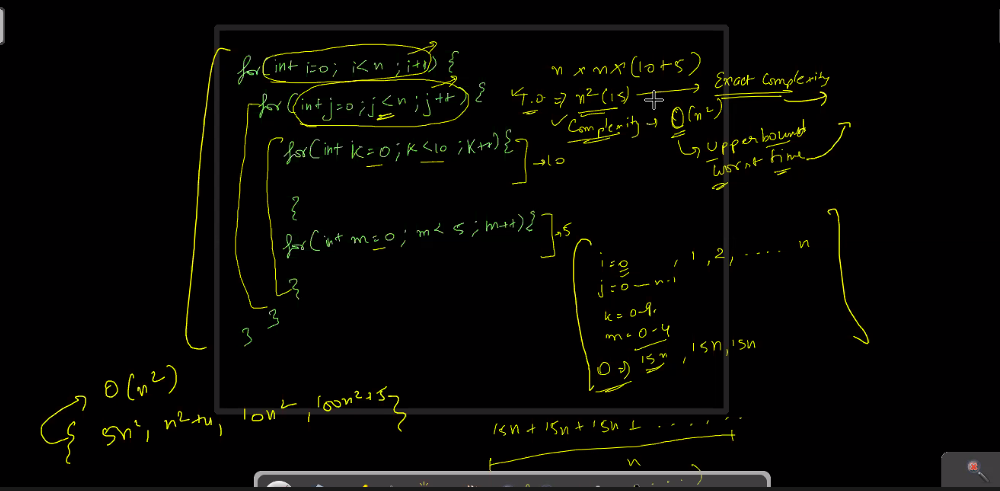 for(int i=0; i<n; i++) {
for(int j=0; j<n; j++) {
for(int k=0; k<10; k++){
→10
}
for(int m=0; m<5; m++){
→5
}
}
}
n × n × (10+5)
T.O ⇒ n²(15) → Exact Complexity
✓ Complexity → O(n²)
↳ Upperbound
Worst Time
i=0, 1, 2, .... n
j=0 — n-1
k=0-9
m=0-4
O ⇒ 15n, 15n, 15n
O(n²)
{ 5n², n²+4, 10n², 100n²+5 }
15n + 15n + 15n + ......
n